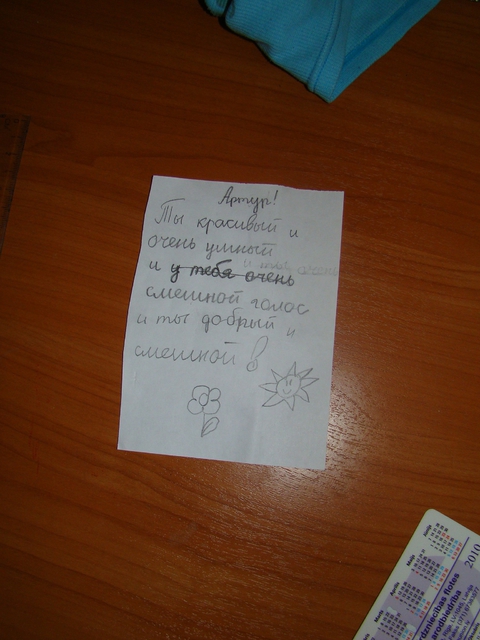 Артур!
Ты красивый и
очень умный
и у тебя очень
смешной голос
и ты добрый и
смешной!
2010